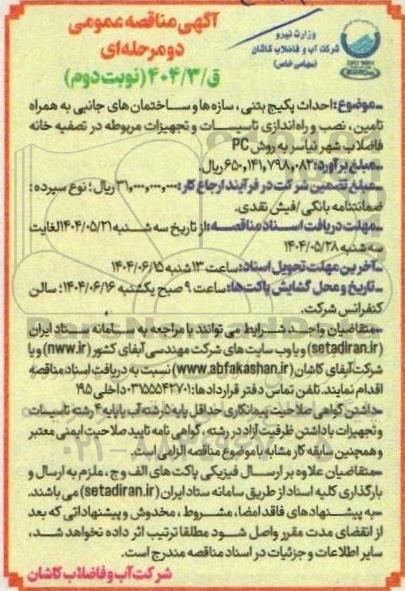 آگهی مناقصه عمومی
دو مرحله‌ای
ق/۴۰۴/۳ (نوبت دوم)
وزارت نیرو
شرکت آب و فاضلاب کاشان
(سهامی خاص)
ـ موضوع: احداث پکیج بتنی، سازه‌ها و ساختمان‌های جانبی به همراه
تامین، نصب و راه‌اندازی تاسیسات و تجهیزات مربوطه در تصفیه خانه
فاضلاب شهر نیاسر به روش PC
ـ مبلغ برآورد: ۶۵۰,۱۴۱,۷۹۸,۰۸۲ ریال.
ـ مبلغ تضمین شرکت در فرآیند ارجاع کار: ۳۱,۰۰۰,۰۰۰,۰۰۰ ریال؛ نوع سپرده:
ضمانتنامه بانکی/فیش نقدی.
ـ مهلت دریافت اسناد مناقصه: از تاریخ سه شنبه ۱۴۰۴/۰۵/۲۱ لغایت
سه شنبه ۱۴۰۴/۰۵/۲۸
ـ آخرین مهلت تحویل اسناد: ساعت ۱۳ شنبه ۱۴۰۴/۰۶/۱۵
ـ تاریخ و محل گشایش پاکت‌ها: ساعت ۹ صبح یکشنبه ۱۴۰۴/۰۶/۱۶؛ سالن
کنفرانس شرکت.
ـ متقاضیان واجد شرایط می توانند با مراجعه به سامانه ستاد ایران
(setadiran.ir) و یا وب سایت های شرکت مهندسی آبفای کشور (nww.ir) و یا
شرکت آبفای کاشان (www.abfakashan.ir) نسبت به دریافت اسناد مناقصه
اقدام نمایند. تلفن تماس دفتر قراردادها: ۰۳۱۵۵۵۴۲۷۰۱ داخلی ۱۹۵
ـ داشتن گواهی صلاحیت پیمانکاری حداقل پایه ۵ رشته آب یا پایه ۴ رشته تاسیسات
و تجهیزات با داشتن ظرفیت آزاد در رشته، گواهی نامه تایید صلاحیت ایمنی معتبر
و همچنین سابقه کار مشابه با موضوع مناقصه الزامی است.
ـ متقاضیان علاوه بر ارسال فیزیکی پاکت های الف و ج، ملزم به ارسال و
بارگذاری کلیه اسناد از طریق سامانه ستاد ایران (setadiran.ir) می باشند.
ـ به پیشنهادهای فاقد امضا، مشروط، مخدوش و پیشنهاداتی که بعد
از انقضای مدت مقرر واصل شود مطلقا ترتیب اثر داده نخواهد شد،
سایر اطلاعات و جزئیات در اسناد مناقصه مندرج است.
شرکت آب و فاضلاب کاشان